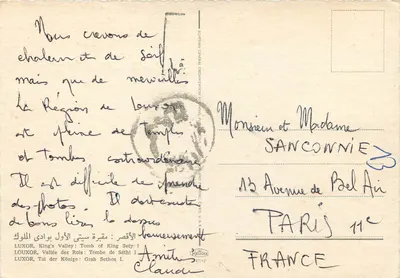 Nous crevons de
chaleur et de soif
mais que de merveilles
La Région de Louxor
est pleine de Temples
et Tombes extraordinaires
Il est difficile de prendre
des photos. Il doit exister
de bons livres là dessus
heureusement
Amitiés
Claude
الأقصر : مقبرة سيتى الأول بوادى الملوك
LUXOR, King's Valley : Tomb of King Sety I
LOUXOR, Vallée des Rois : Tombe de Séthi I
LUXOR, Tal der Könige : Grab Sethos I.
Monsieur et Madame
SANCONNIE
13 Avenue de Bel Air
PARIS 11e
FRANCE